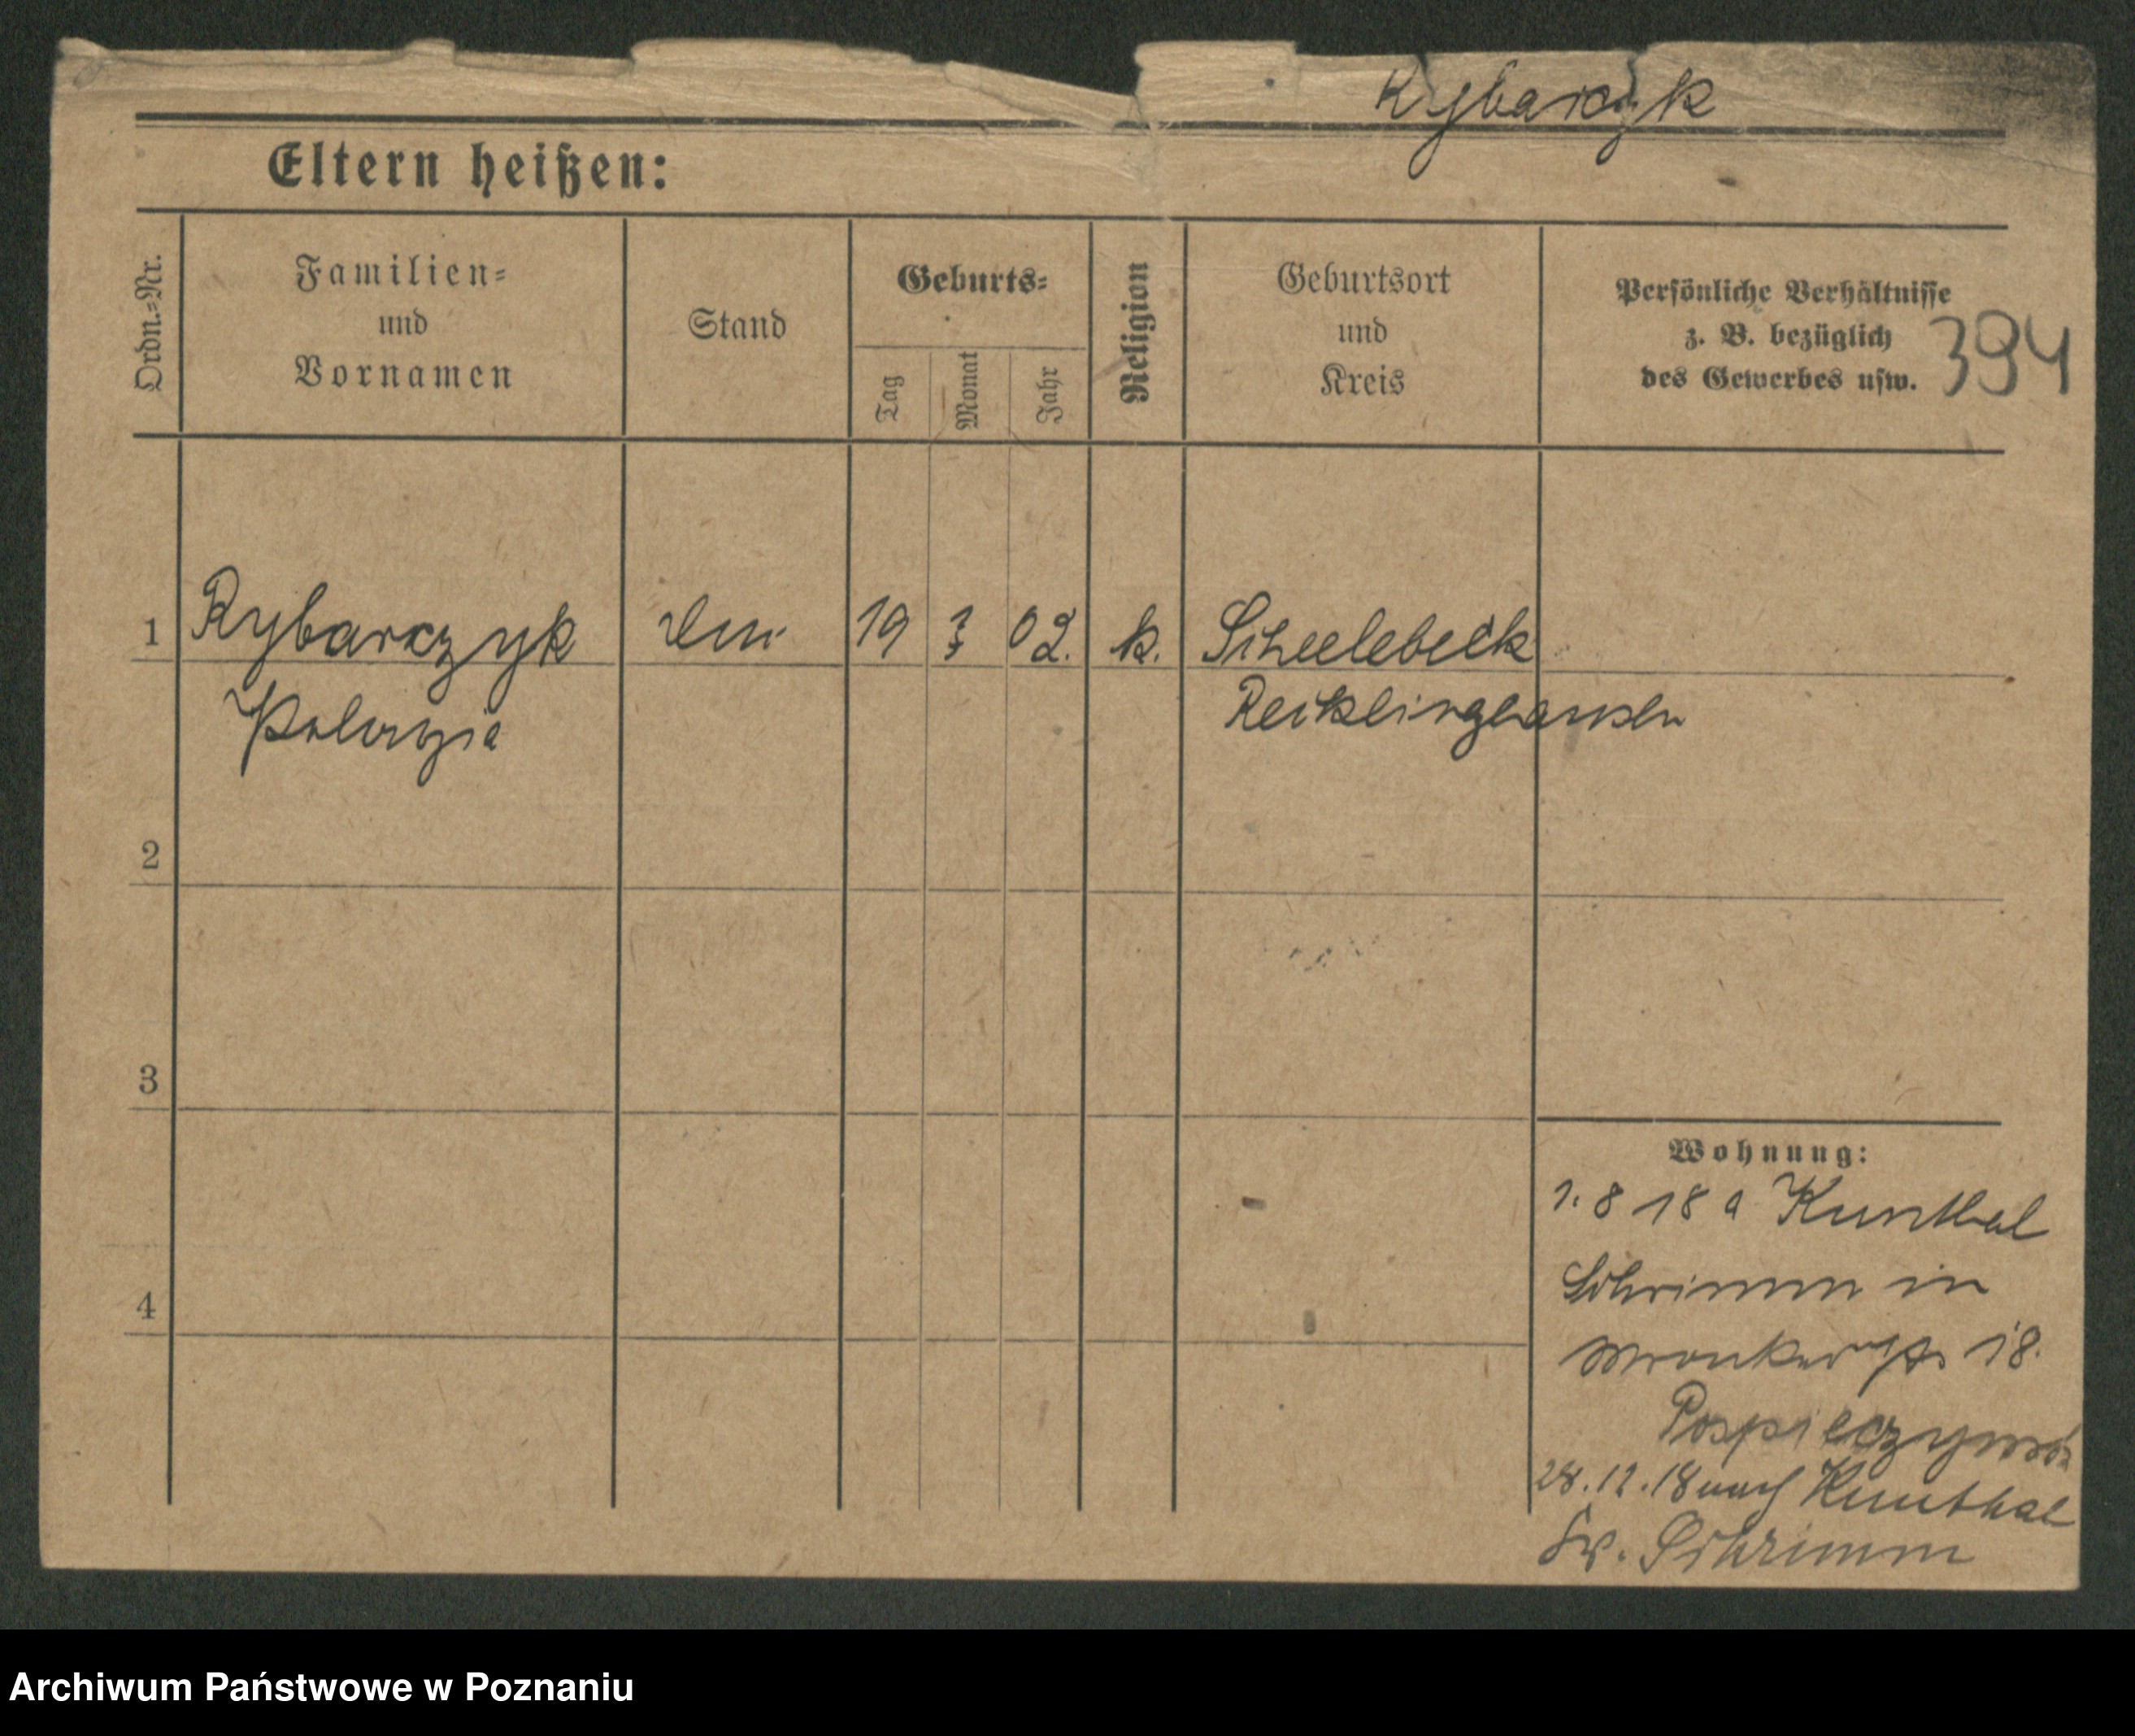 Rybarczyk
Eltern heißen:
Ordn.-Nr.
Familien-
und
Vornamen
Stand
Geburts-
Tag
Monat
Jahr
Religion
Geburtsort
und
Kreis
Persönliche Verhältnisse
z. B. bezüglich
des Gewerbes usw.
394
1 Rybarczyk 19 02. k.
Recklinghausen
2
3
4
Wohnung:
1. 8 18 a Kunthal
Schrimm in
18.
28.12.18 nach Kunthal
Kr. Schrimm
Archiwum Państwowe w Poznaniu